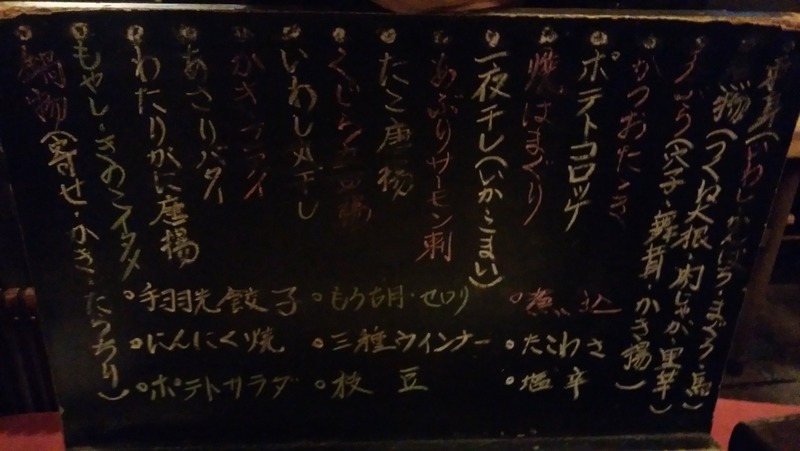 刺身(いわし・かんぱち・まぐろ・馬)
(つくね大根・肉じゃが・里芋)
天ぷら(穴子・舞茸・かき揚)
かつおたたき
ポテトコロッケ
焼はまぐり
一夜干し(いか・こまい)
あぶりサーモン刺
たこ唐揚
くじら
いわし丸干し
かきフライ
あさりバター
わたりがに唐揚
もやし・きのこイタメ
鍋物(寄せ・かき・たらちり)
煮込
たこわさ
塩辛
もろ胡・セロリ
三種ウインナー
枝豆
手羽先餃子
にんにく焼
ポテトサラダ